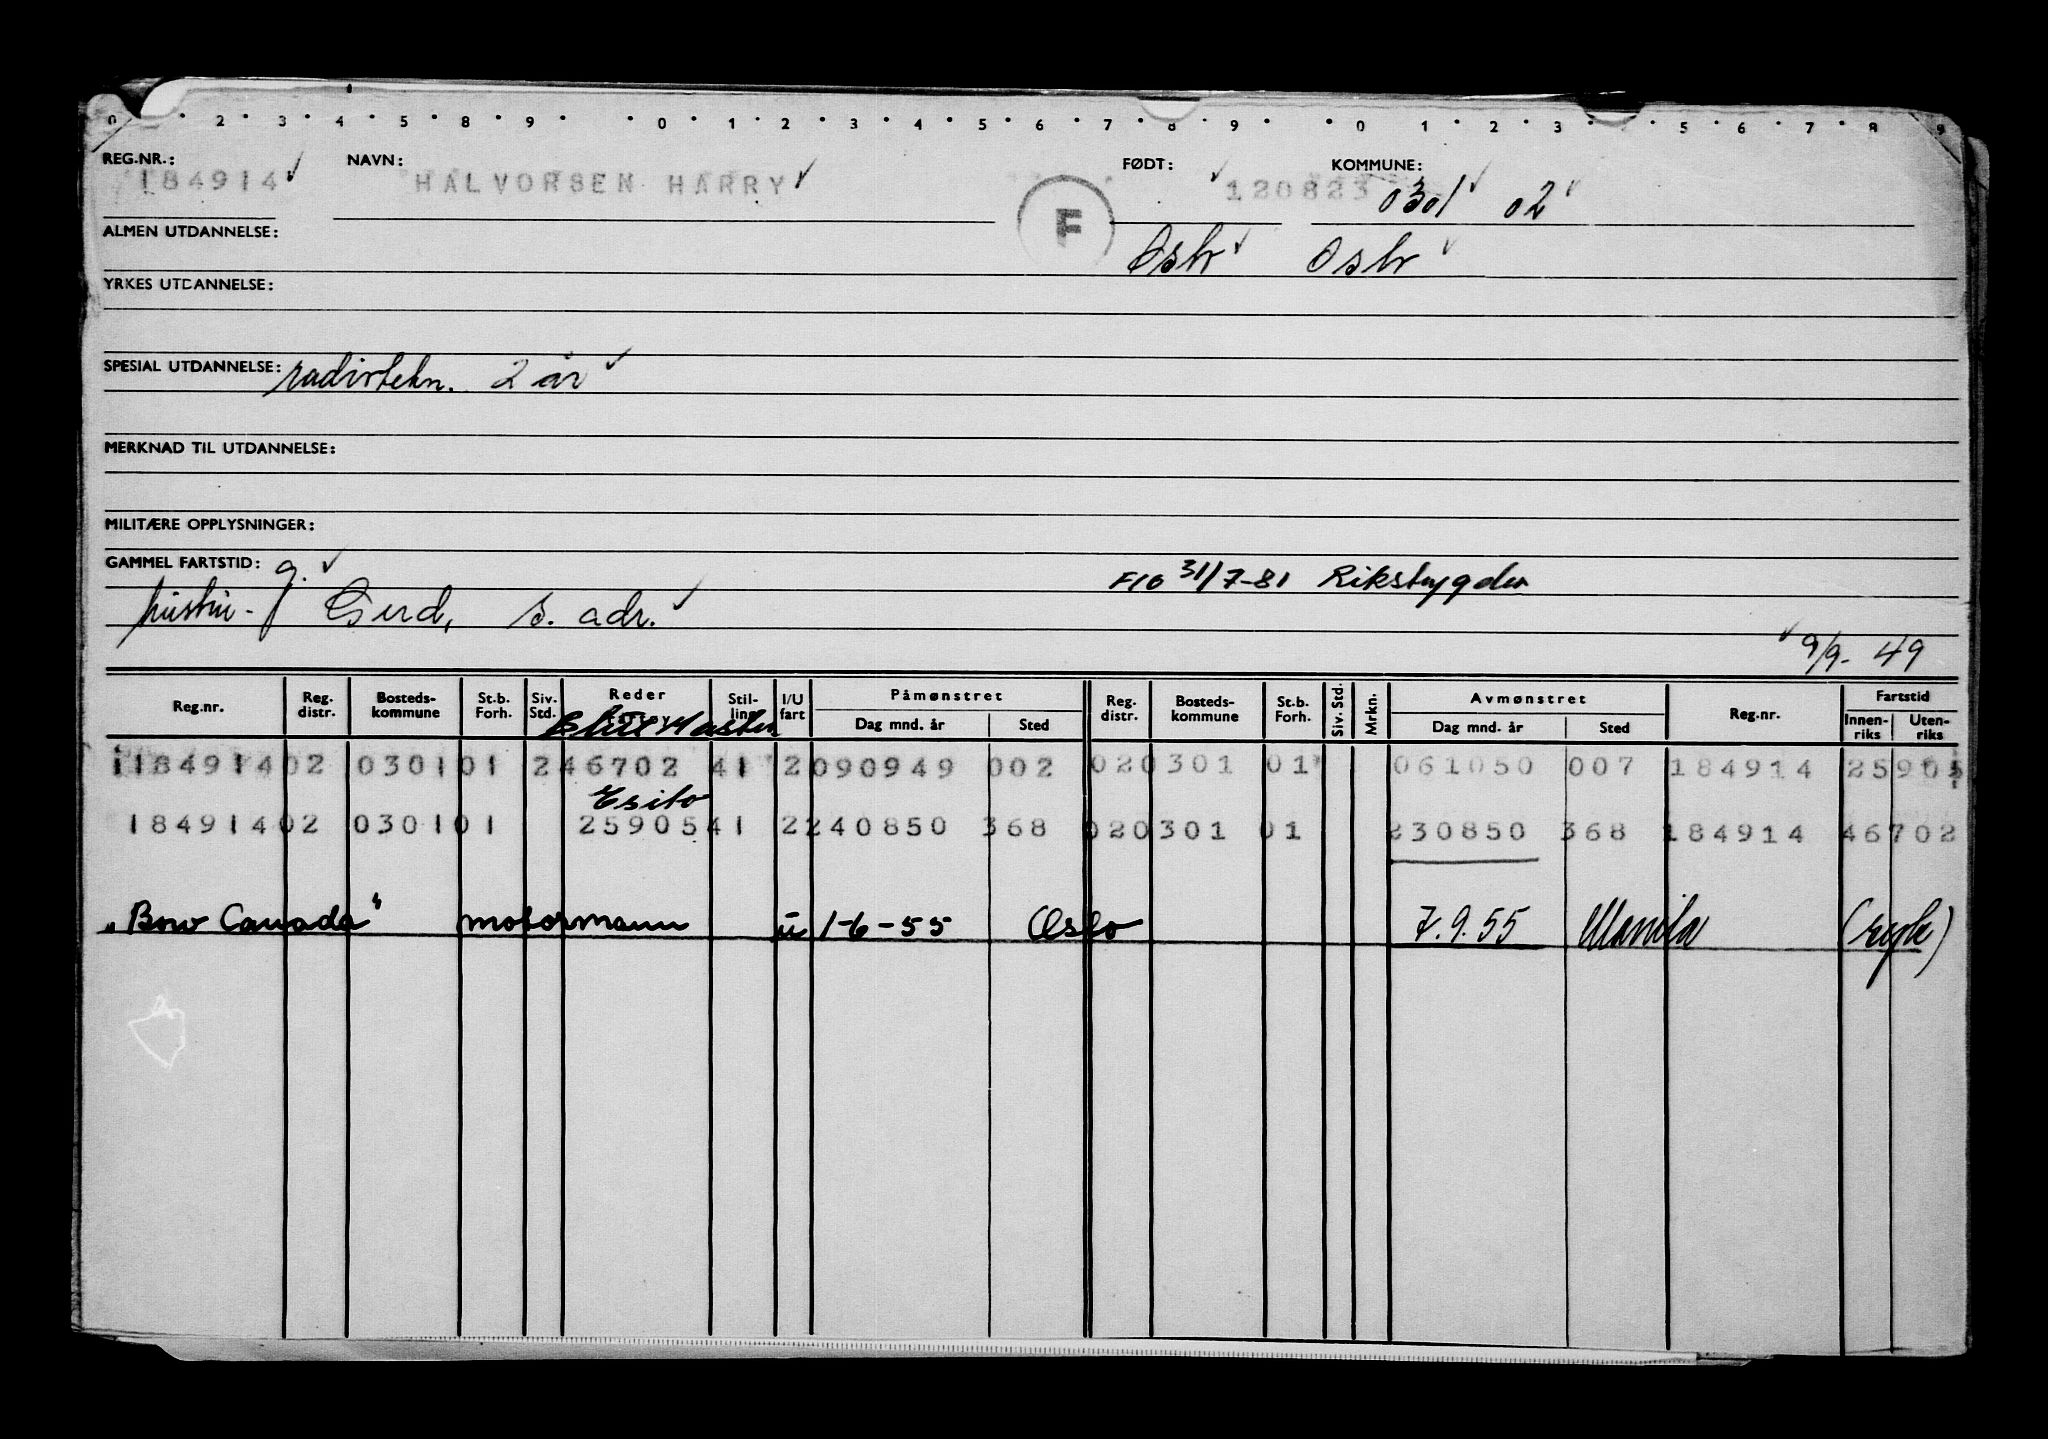 0 2 3 4 5 8 9 0 1 2 3 4 5 6 7 8 9 0 1 2 3 5 6 7 8 9
REG.NR.: NAVN: FØDT: KOMMUNE:
184914 HALVORSEN HARRY 120823 0301 02
F
ALMEN UTDANNELSE: Oslo Oslo
YRKES UTDANNELSE:
SPESIAL UTDANNELSE: radiotekn. 2 år
MERKNAD TIL UTDANNELSE:
MILITÆRE OPPLYSNINGER:
GAMMEL FARTSTID: g. 31/7-81 Rikstrygden
hustru - Gerd, s. adr.
9/9- 49
Reg.nr. Reg. distr. Bosteds-kommune St.b. Forh. Siv. Std. Reder Stil-ling I/U fart Påmønstret Dag mnd. år Sted Reg. distr. Bosteds-kommune St.b. Forh. Siv. Std. Mrkn. Avmønstret Dag mnd. år Sted Reg.nr. Fartstid Innen-riks Uten-riks
184914 02 0301 01 2 46702 41 2 090949 002 02 0301 01 061050 007 184914 25905
Esito
184914 02 0301 01 25905 41 2 240850 368 02 0301 01 230850 368 184914 46702
"Bow Canada" motormann u 1-6-55 Oslo 7.9.55 Manila